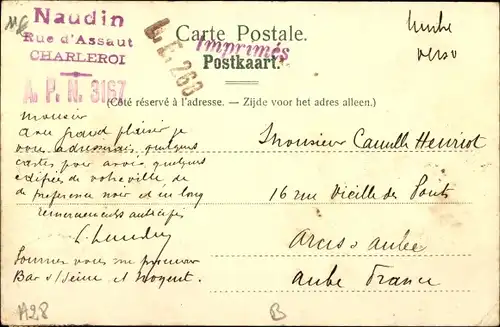 Naudin
Rue d'Assaut
CHARLEROI
A. P. N. 3167
L.E. 263
Carte Postale.
Imprimés
Postkaart.
timbre
verso
(Côté réservé à l'adresse. – Zijde voor het adres alleen.)
Monsieur
avec grand plaisir je
vous adresserais quelques
cartes pour avoir quelques
de votre ville de
de préférence noir et en long
remerciements anticipés
L. Naudin
vous me procurer
Bar s/Seine et Nogent.
Monsieur Camille Henriot
16 rue Vieille des Ponts
Arcis s aube
Aube France
A28
B